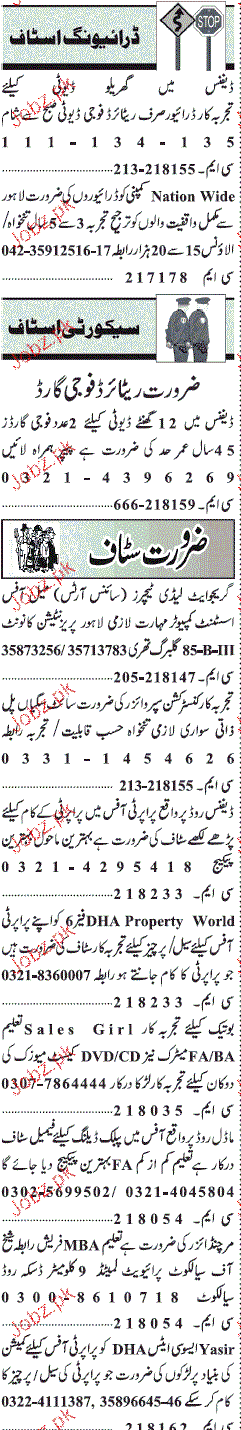 STOP
ڈرائیونگ اسٹاف
ڈیفنس میں گھریلو ڈیوٹی کیلئے
تجربہ کار ڈرائیور صرف ریٹائرڈ فوجی ڈیوٹی صبح سے شام
111-134-135
سی ایم۔213-218155
Nation Wide کمپنی کو ڈرائیوروں کی ضرورت لاہور
سے مکمل واقفیت والوں کو ترجیح تجربہ 3 سے 5 سال تنخواہ/
الاؤنس 15 سے 20 ہزار رابطہ 17-35912516-042
سی ایم 217178
سیکورٹی اسٹاف
ضرورت ریٹائرڈ فوجی گارڈ
ڈیفنس میں 12 گھنٹے ڈیوٹی کیلئے 2 عدد فوجی گارڈز
45 سال عمر حد کی ضرورت ہے پیپر ہمراہ لائیں
0321-4396269
سی ایم۔666-218159
ضرورت سٹاف
گریجوایٹ لیڈی ٹیچرز (سائنس آرٹس) فیمیل آفس
اسسٹنٹ کمپیوٹر مہارت لازمی لاہور پریزنٹیشن کانونٹ
85-B-III گلبرگ تھری 35713783/35873256
سی ایم۔205-218147
تجربہ کار کنسٹرکشن سپروائزر کی ضرورت سائٹ بیگیاں پل
ذاتی سواری لازمی تنخواہ حسب قابلیت/ تجربہ رابطہ
0331-1454626
سی ایم۔213-218155
ڈیفنس روڈ پر واقع پراپرٹی آفس میں پراپرٹی کے کام کیلئے
پڑھے لکھے سٹاف کی ضرورت ہے بہترین ماحول بہترین
پیکیج 0321-4295418
سی ایم۔218233
DHA Property World فیز 6 کو اپنے پراپرٹی
آفس کیلئے سیل/ پرچیز کیلئے تجربہ کار سٹاف کی ضرورت ہیں
جو پراپرٹی کا کام جانتے ہو رابطہ 0321-8360007
سی ایم۔218233
بوتیک کیلئے تجربہ کار Sales Girl تعلیم
FA/BA میٹرک نیز DVD/CD کیسٹ میوزک کی
دوکان کیلئے تجربہ کار لڑکا درکار 0307-7864444
سی ایم۔218035
ماڈل روڈ پر واقع آفس میں پبلک ڈیلنگ کیلئے فیمیل سٹاف
درکار ہے تعلیم کم از کم FA بہترین پیکیج دیا جائے گا
0302-5699502/ 0321-4045804
سی ایم۔218054
مرچنڈائزر کی ضرورت ہے تعلیم MBA فریش رابطہ شیخ
آف سیالکوٹ پرائیویٹ لمیٹڈ 9 کلومیٹر ڈسکہ روڈ
سیالکوٹ 0300-8610718
سی ایم۔218054
Yasir ایسوسی ایٹس DHA کو پراپرٹی آفس کیلئے کمیشن
کی بنیاد پر لڑکوں کی ضرورت جو پراپرٹی کی سیل/ پرچیز کا
کام کر سکے 0322-4111387, 35896645-46
سی ایم۔218162
Jobz.pk